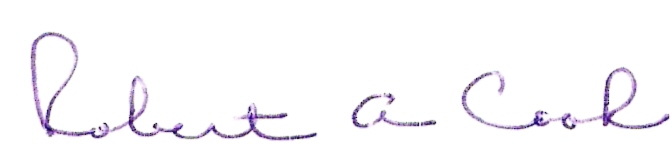 Robert A Cook